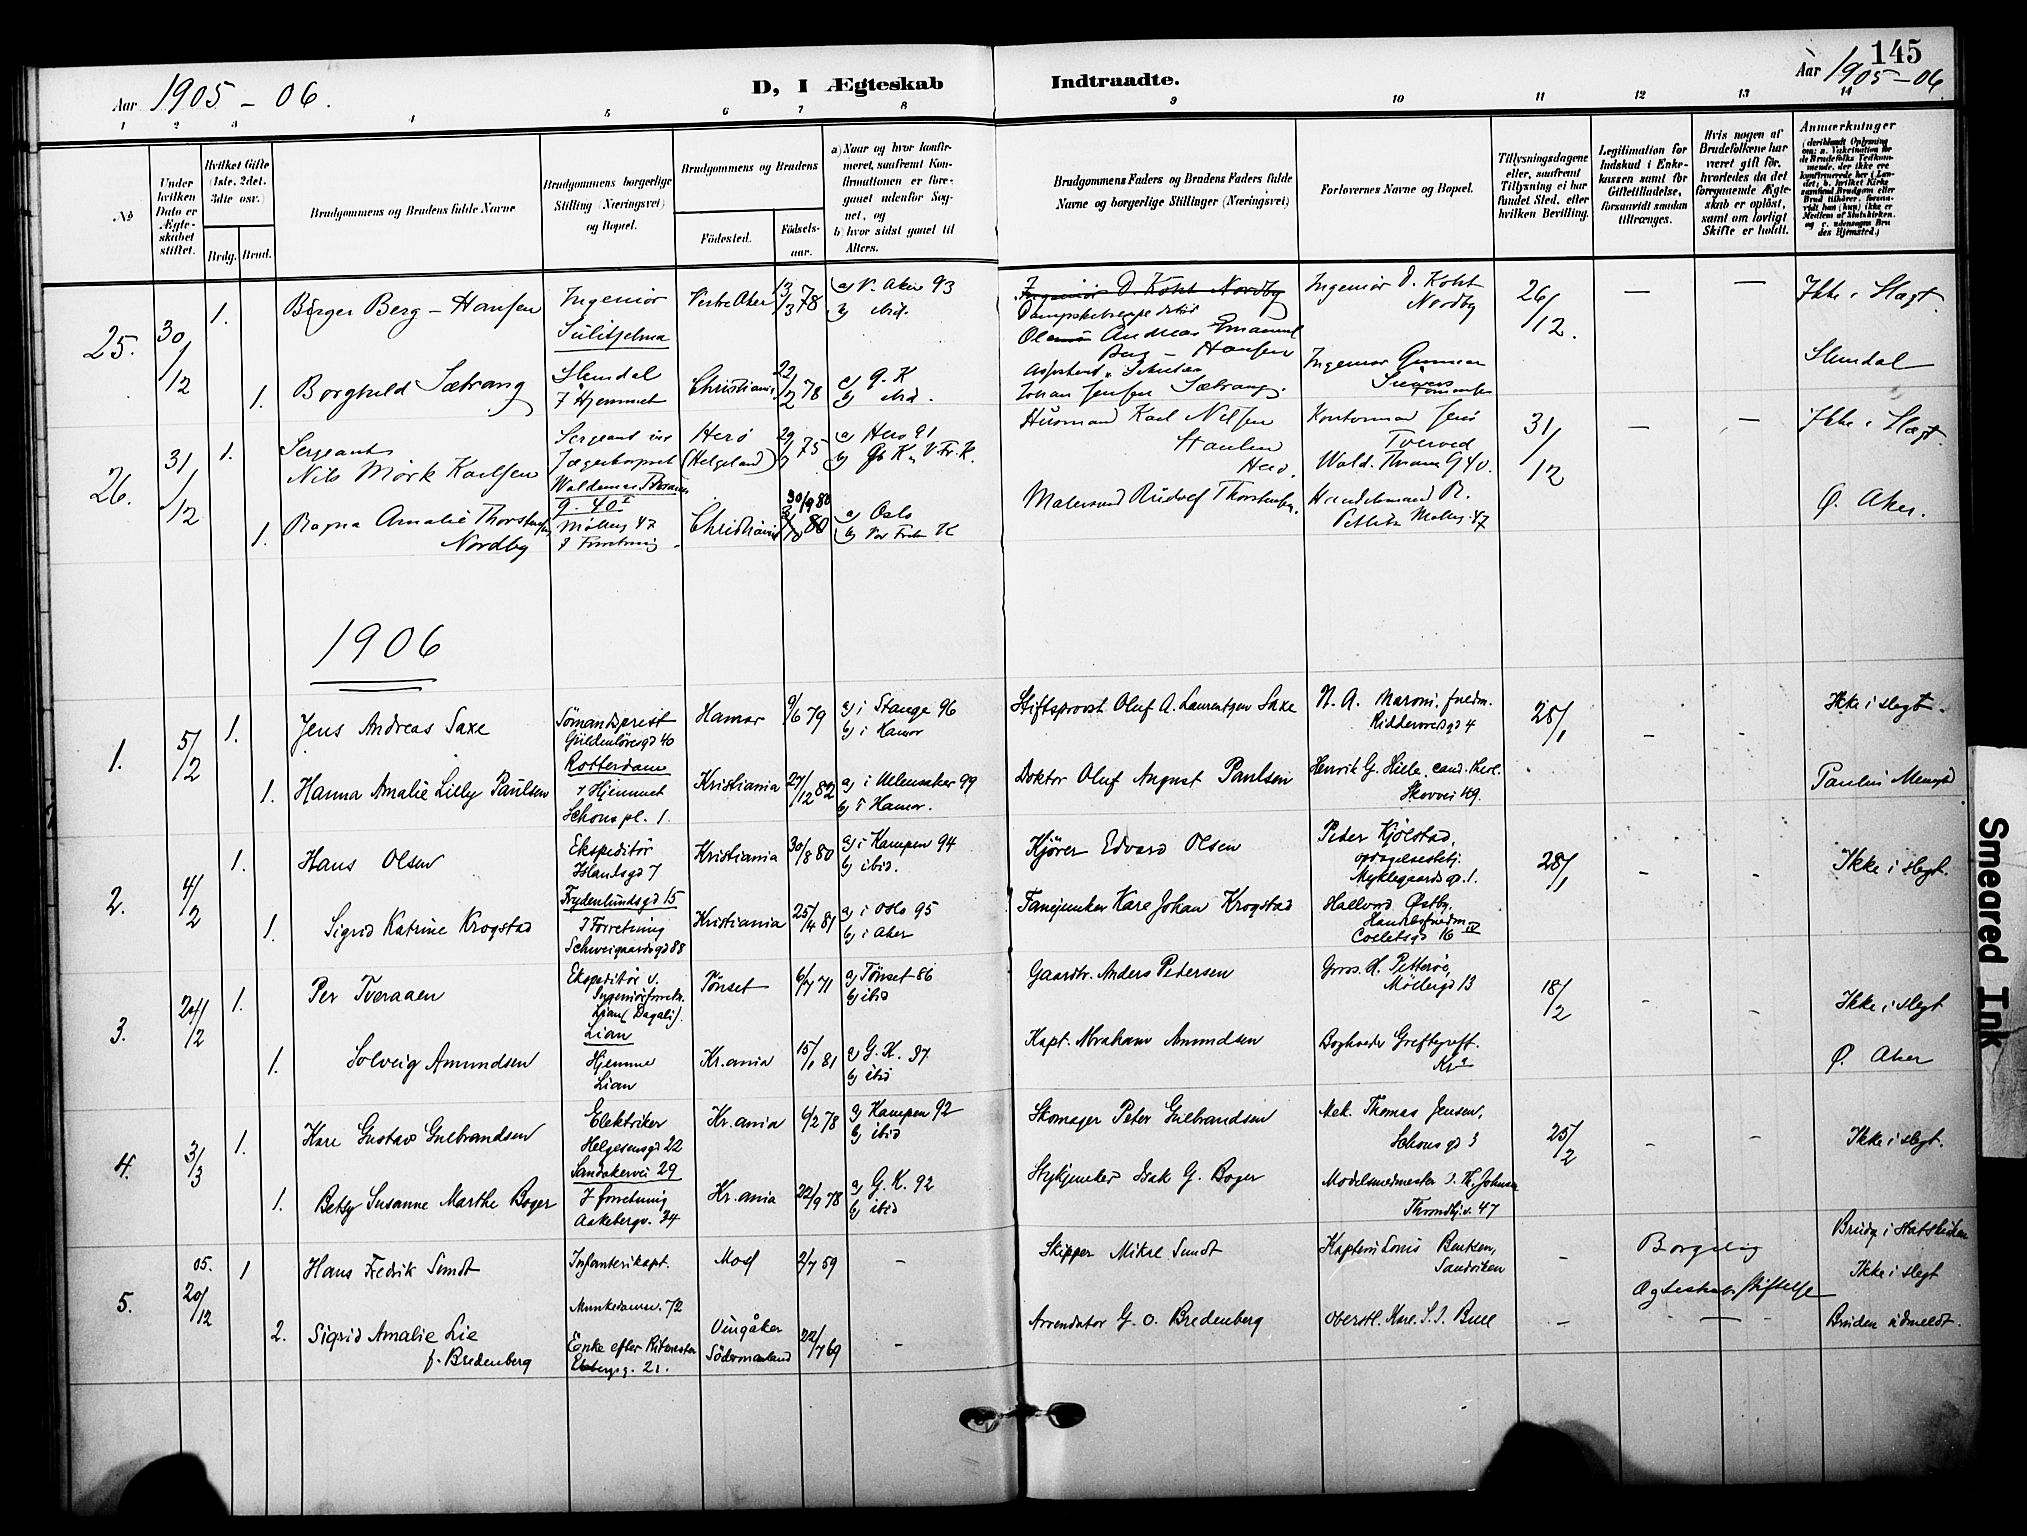 145
Aar 1905-06.
D, I Ægteskab Indtraadte.
Aar 1905-06
1 2 3 4 5 6 7 8 9 10 11 12 13 14
No
Under hvilken Dato er Ægteskabet stiftet.
Hvilket Gifte (1ste, 2det, 3die osv.)
Brdg. Brud.
Brudgommens og Brudens fulde Navne
Brudgommens borgerlige Stilling (Næringsvei) og Bopæl.
Brudgommens og Brudens
Fødested.
Fødselsaar.
a) Naar og hvor konfirmeret, saafremt Konfirmationen er foregaaet udenfor Sognet, og
b) hvor sidst gaaet til Alters.
Brudgommens Faders og Brudens Faders fulde Navne og borgerlige Stillinger (Næringsvei)
Forlovernes Navne og Bopæl.
Tillysningsdagene eller, saafremt Tillysning ei har fundet Sted, efter hvilken Bevilling.
Legitimation for Indskud i Enkekassen samt for Giftetilladelse, forsaavidt saadan tiltrænges.
Hvis nogen af Brudefolkene har været gift før, hvorledes da det foregaaende Ægteskab er opløst, samt om lovligt Skifte er holdt.
Anmærkninger
25. 30/12 1. Birger Berg-Hansen Ingeniør Sulitjelma Vestre Aker 13/3 78 a) V. Aker 93 b) ibid.
Ingeniør D. Koht Nordby
Olaus Andreas Emanuel Berg-Hansen
Ingeniør D. Koht Nordby 26/12. — — Ikke i Slægt.
1. Borghild Sætrang Slemdal I Hjemmet Christiania 22/2 78 a) G. K b) ibid.
Johan Jensen Sætrang.
Ingeniør Gunnar
Slemdal
26. 31/12 1. Sergeant Nils Mörk Karlsen Sergeant Jægerkorpset Waldemar Thranes g. 40 I Herø (Helgeland) 29/ 75 a) Herø 91
Husmand Karl Nilsen Herø.
Kontormand Jens Tverved Wald. Thranes G 40. 31/12 — — Ikke i Slægt
1. Ragna Amalie Thorstensen Nordby Møllerg 47 I Forretning Christiania 30/9 80 a) Oslo
Malersvend Rudolf Thorstensen.
Handelsmand R. Møllerg. 47
Ø. Aker.
1906
1. 5/2 1. Jens Andreas Saxe Sömandsprest Gyldenlövesgd 40 Rotterdam Hamar 9/6 79 a) i Stange 96 b) i Hamar
Stiftsprovst Oluf A. Laurentzen Saxe
N. A. Maroni. fuldm. Riddervoldsgd 4 28/1 - - Ikke i slegt.
1. Hanna Amalie Lilly Paulsen I Hjemmet Schous pl. 1. Kristiania 27/12 82 a) i Ullensaker 99 b) i Hamar.
Doktor Oluf August Paulsen
Henrik G. Hille, cand. theol. Skovvei 49.
Paulus Menighed
2. 4/2 1. Hans Olsen Ekspeditör Islandsgd 7 Frydenlundsgd 15 Kristiania 30/8 80 a) i Kampen 94 b) ibid.
Kjörer Edvard Olsen
Peder Kjölstad, opdagelsesbetj. Myklegaardsgd. 1. 28/1 - - Ikke i slegt.
1. Sigrid Katrine Krogstad I Forretning Schweigaardsgd 88 Kristiania 25/4 81 a) i Oslo 95 b) i Aker
Fanejunker Karl Johan Krogstad
Hallvard Östby, Handelsfuldm. Colletsgd 16 IV
3. 24/2 1. Per Tveraaen Ekspeditör v. Ingeniörforretn. Lian (Dagali). Lian Tönset 6/7 71 a) Tönset 86 b) ibid
Gaardbr. Anders Petersen
Gross. H. Petteröe, Möllergd 13 18/2 - - Ikke i slegt
1. Solveig Amundsen Hjemme Lian Kr.ania 15/1 81 a) G. K. 97 b) ibid
Kapt. Abraham Amundsen
Bogholder Kr a
Ø. Aker
4. 3/3 1. Karl Gustav Gulbrandsen Elektriker Helgesensgd 22 Sandakervei 29 Kr.ania 4/2 78 a) Kampen 92 b) ibid
Skomager Peter Gulbrandsen
Mek. Thomas Jensen, Schousgd 3 25/2 - - Ikke i slegt.
1. Betsy Susanne Marthe Boger I forretning Aakebergv. 34 Kr.ania 22/9 78 a) G. K. 92 b) ibid
Stykjunker Isak G. Boger
Modelsnedmester Johnsen Throndhj.v. 47
5. 05. 20/12 1 Hans Fredrik Sundt Infanterikapt. Munkedamsv. 72 Moss 2/7 59 -
Skipper Mikal Sundt
Kaptein Louis Bentzen, Sandviken - Borgelig Egteskabsstiftelse
Brudg i Statskirken Ikke i slegt
2. Sigrid Amalie Lie f. Bredenberg Enke efter Ritmester Elsbergsg. 21. Vingåker Södermanland 22/7 69 -
Arrendator G. O. Bredenberg
Oberstl. Karl S. J. Bull - —
Bruden udmeldt.
Smeared Ink